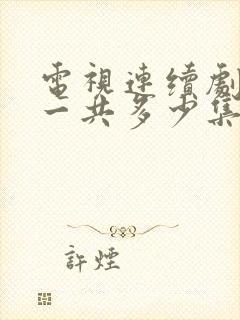 電視連續劇
一共多少集
許煙